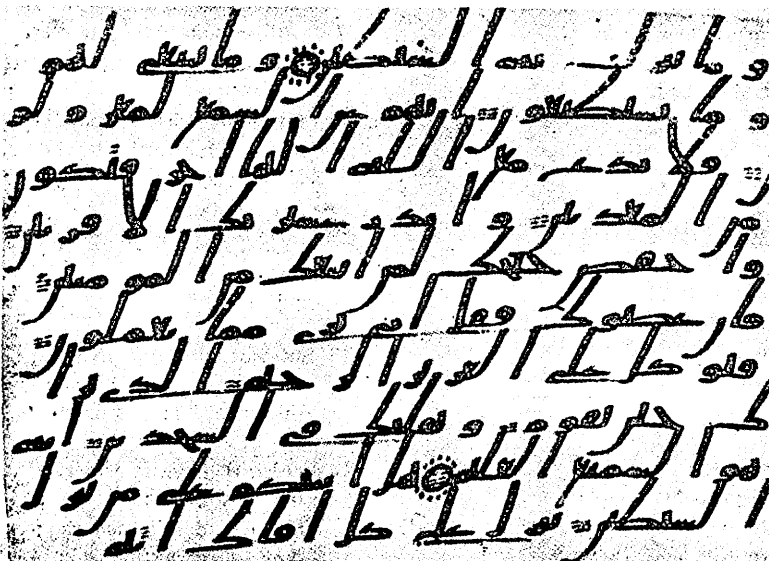 و ما تنزلت به الشيطين و ما ينبغي لهم
و ما يستطيعون انهم عن السمع لمعزولو
ن فلا تدع مع الله الها اخر فتكو
ن من المعذبين و انذر عشيرتك الاقربين
و اخفض جناحك لمن اتبعك من المومنين
فان عصوك فقل اني بري مما تعملون
فتوكل على العزيز الرحيم الذي
يريك حين تقوم و تقلبك في السجدين انه
هو السميع العليم هل انبئكم على من تنز
ل الشيطين تنزل على كل افاك اثيم